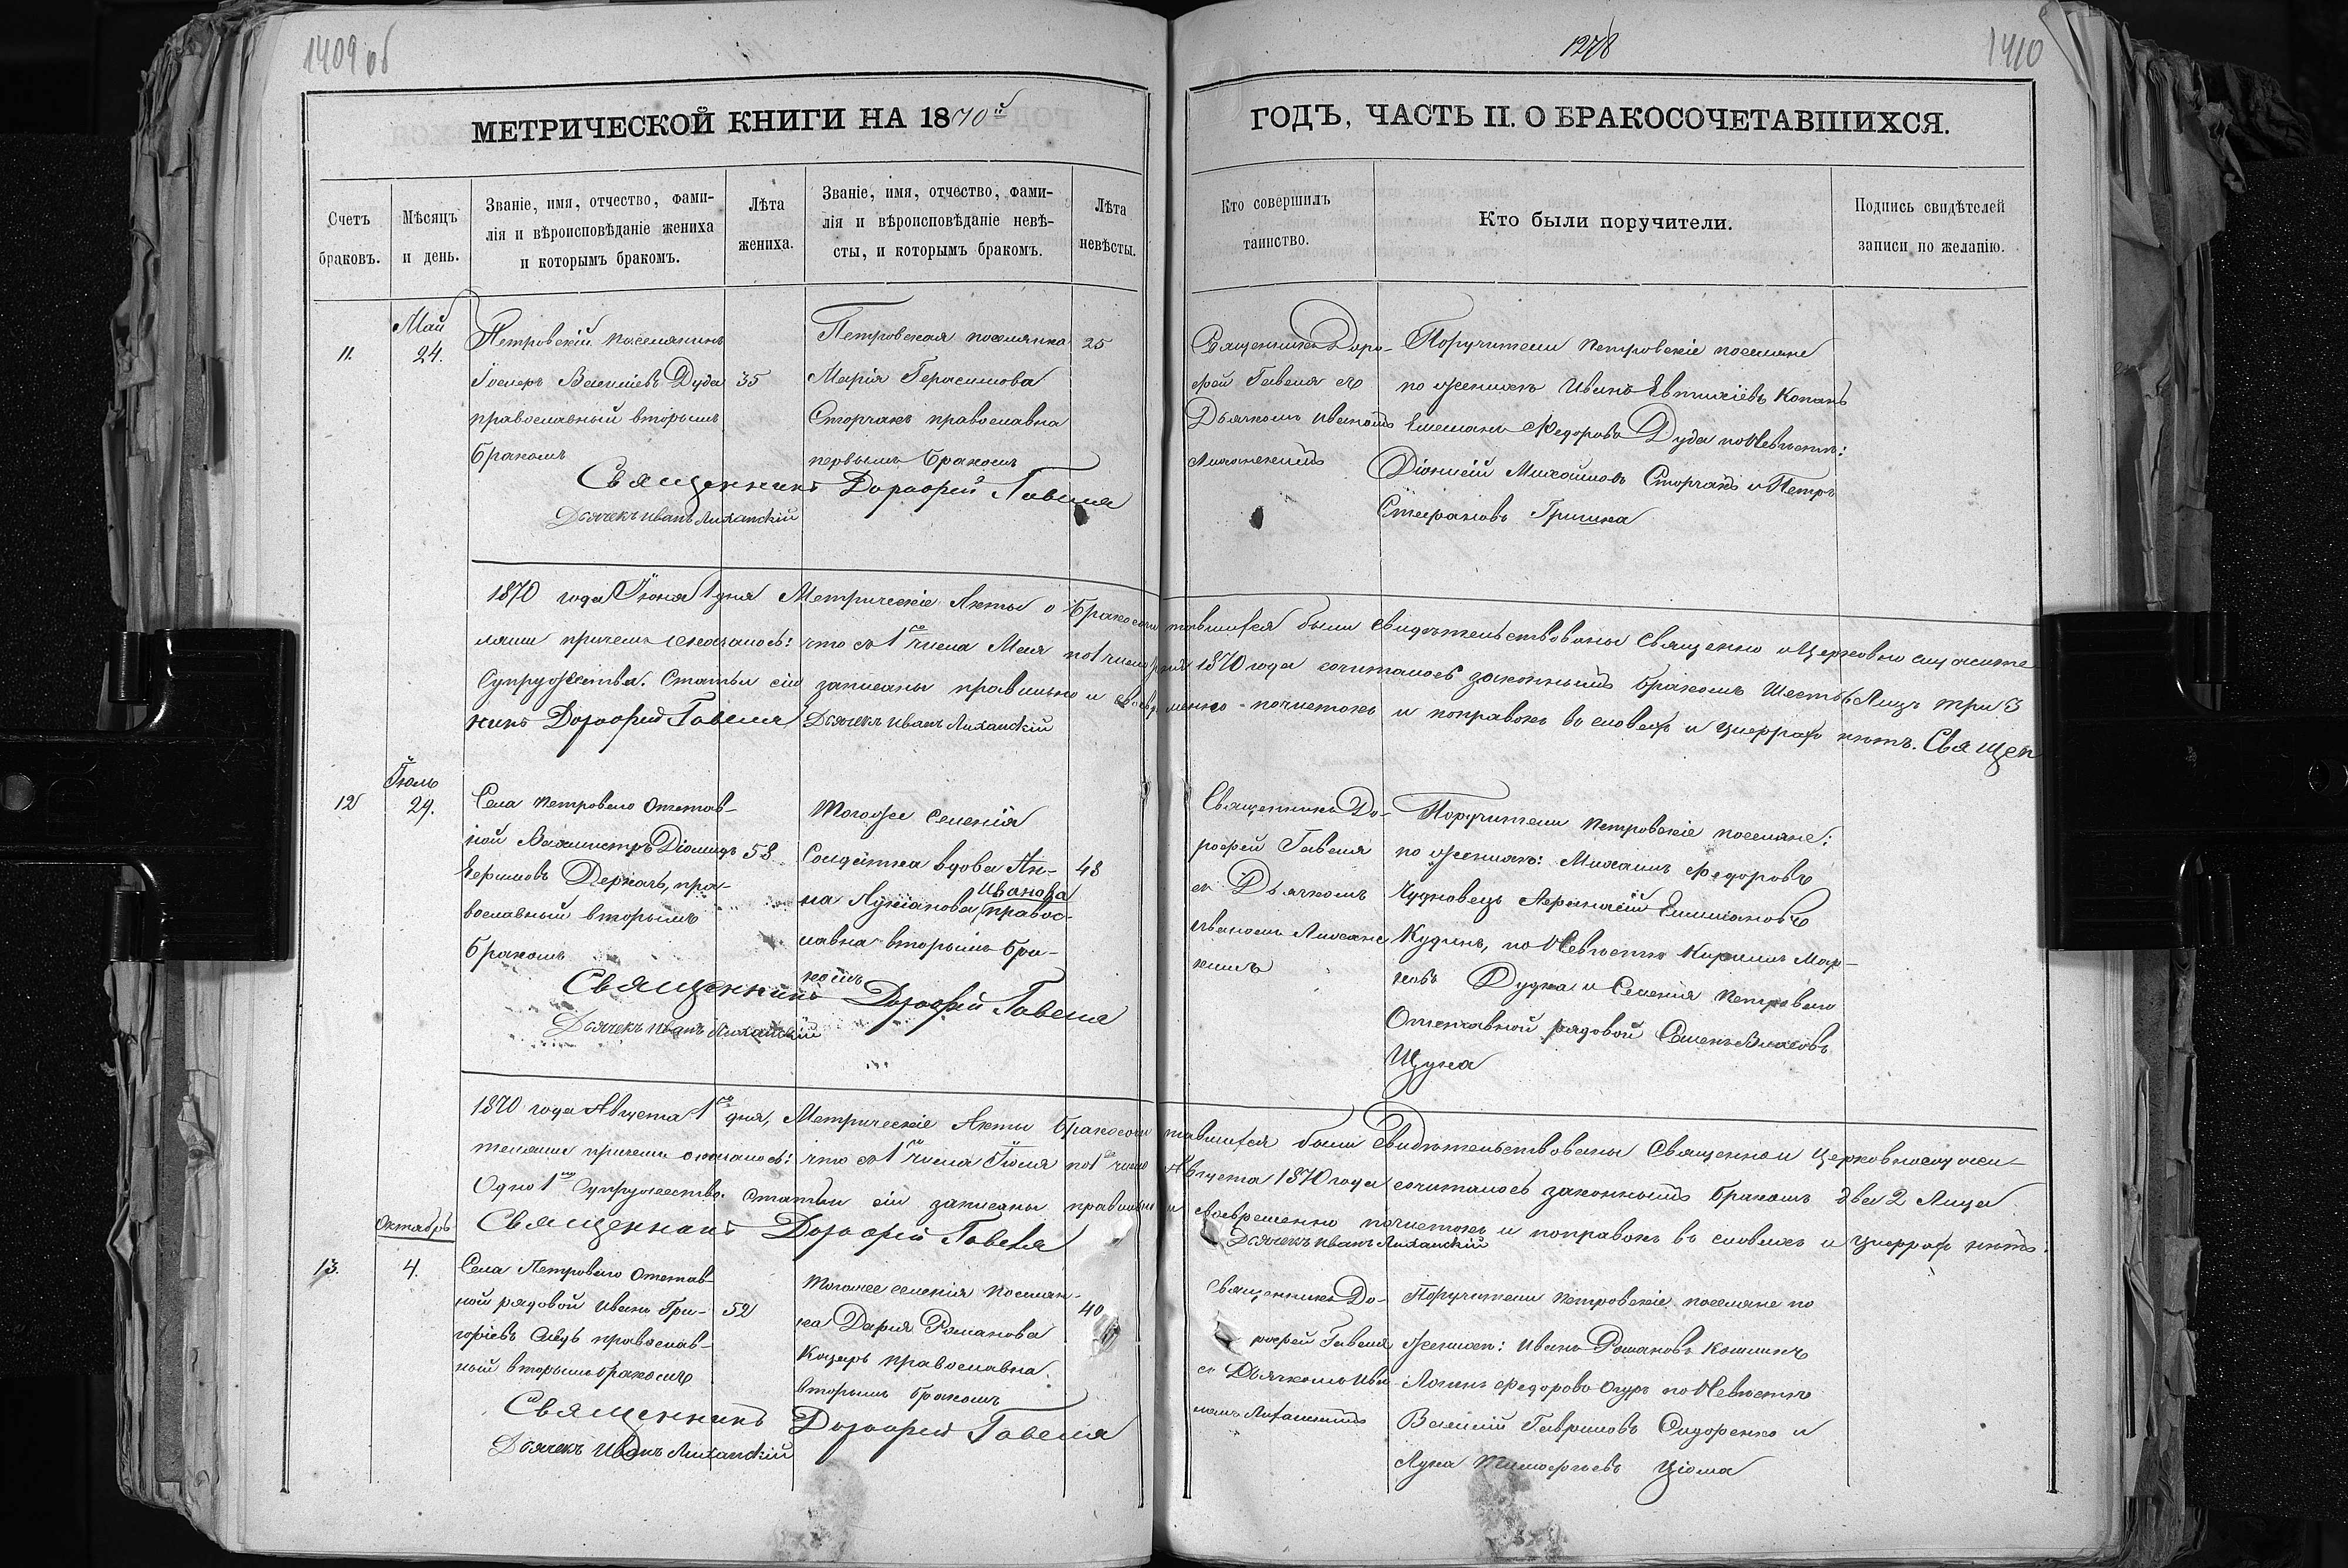 1409 об
МЕТРИЧЕСКОЙ КНИГИ НА 1870й
Счетъ браковъ.
Мѣсяцъ и день.
Званіе, имя, отчество, фами-
лія и вѣроисповѣданіе жениха
и которымъ бракомъ.
Лѣта жениха.
Званіе, имя, отчество, фами-
лія и вѣроисповѣданіе невѣ-
сты, и которымъ бракомъ.
Лѣта невѣсты.
1278
1410
ГОДЪ, ЧАСТЬ II. О БРАКОСОЧЕТАВШИХСЯ.
Кто совершилъ
таинство.
Кто были поручители.
Подпись свидѣтелей
записи по желанію.
11.
Май
24.
Петровскій поселянинъ
Василіевъ Дуда
православный вторымъ
бракомъ
35
Петровская поселянка
Марія Герасимова
Сторчакъ православна
первымъ бракомъ
25
Священникъ Доро-
фей Гавеля съ
Дьячкомъ Иваномъ
Поручители Петровскіе поселяне
по женихѣ Иванъ Евтихіевъ
Федоровъ Дуда по Невѣстѣ:
Діонисій Михайловъ Сторчакъ и Петръ
Стефановъ
Священникъ Дорофей Гавеля
Дьячекъ Иванъ
1870 года Іюня 1 дня Метрическіе Акты о бракосочетавшихся были свидѣтельствованы Священно и Церковно служите
лями причемъ оказалось: что съ 1го числа Мая по 1 число Іюня 1870 года сочиталось законнымъ бракомъ шесть 6 Лицъ три 3
Супружества. Статьи сіи записаны правильно и своевременно почистокъ и поправокъ въ словахъ и цыфрахъ нѣтъ. Священ
никъ Дорофей Гавеля Дьячекъ Иванъ
12
Іюль
29.
Села Петрового Отстав-
ной Вахмистръ Діомидъ
Деркачъ, пра-
вославный вторымъ
бракомъ
58
Тогоже селенія
Солдатка вдова Ан-
на Лукіанова Иванова правос-
лавна вторымъ бра-
комъ
48
Священникъ До-
рофей Гавеля
съ Дьячкомъ
Иваномъ
Поручители Петровскіе поселяне:
по женихѣ: Михаилъ Федоровъ
Чудновецъ Афанасій Емиліановъ
по Невѣстѣ Кирилъ Мар-
ковъ Дудка и Селенія Петрового
Отставной рядовой Семенъ Власовъ
Щука
Священникъ Дорофей Гавеля
Дьячекъ Иванъ
1870 года Августа 1го дня, Метрическіе Акты бракосочетавшихся были Свидѣтельствованы Священно и Церковнослужи-
телями причемъ оказалось: что съ 1го числа Іюля по 1е число Августа 1870 года сочиталось законнымъ бракомъ два 2 Лица
Одно 1но Супружество. Статьи сіи записаны правильно и своевременно почистокъ и поправокъ въ словахъ и цыфрахъ нѣтъ.
Священникъ Дорофей Гавеля
Дьячекъ Иванъ
13.
Октябрь
4.
Села Петрового Отстав-
ной рядовой Иванъ Гри-
горіевъ православ-
ный вторымъ бракомъ
52
Тогоже селенія поселян-
ка Дарія Романова
Кацаръ православна
вторымъ бракомъ
40
Священникъ До-
рофей Гавеля
съ Дьячкомъ Ива-
номъ
Поручители Петровскіе поселяне по
женихѣ: Иванъ Романовъ
Федоровъ по Невѣстѣ
Василій Гавриловъ Сидоренко и
Лука Тимофѣевъ Цюма
Священникъ Дорофей Гавеля
Дьячекъ Иванъ